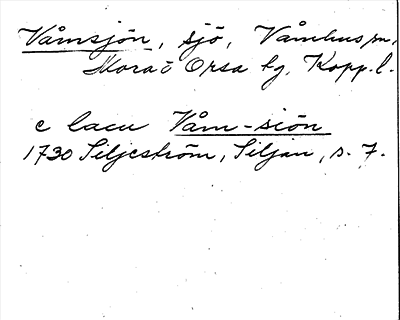 Våmsjön, sjö, Våmhus sn,
Mora o Orsa tg, Kopp. l.
e lacu Våm-siön
1730 Siljeström, Siljan, s. 7.